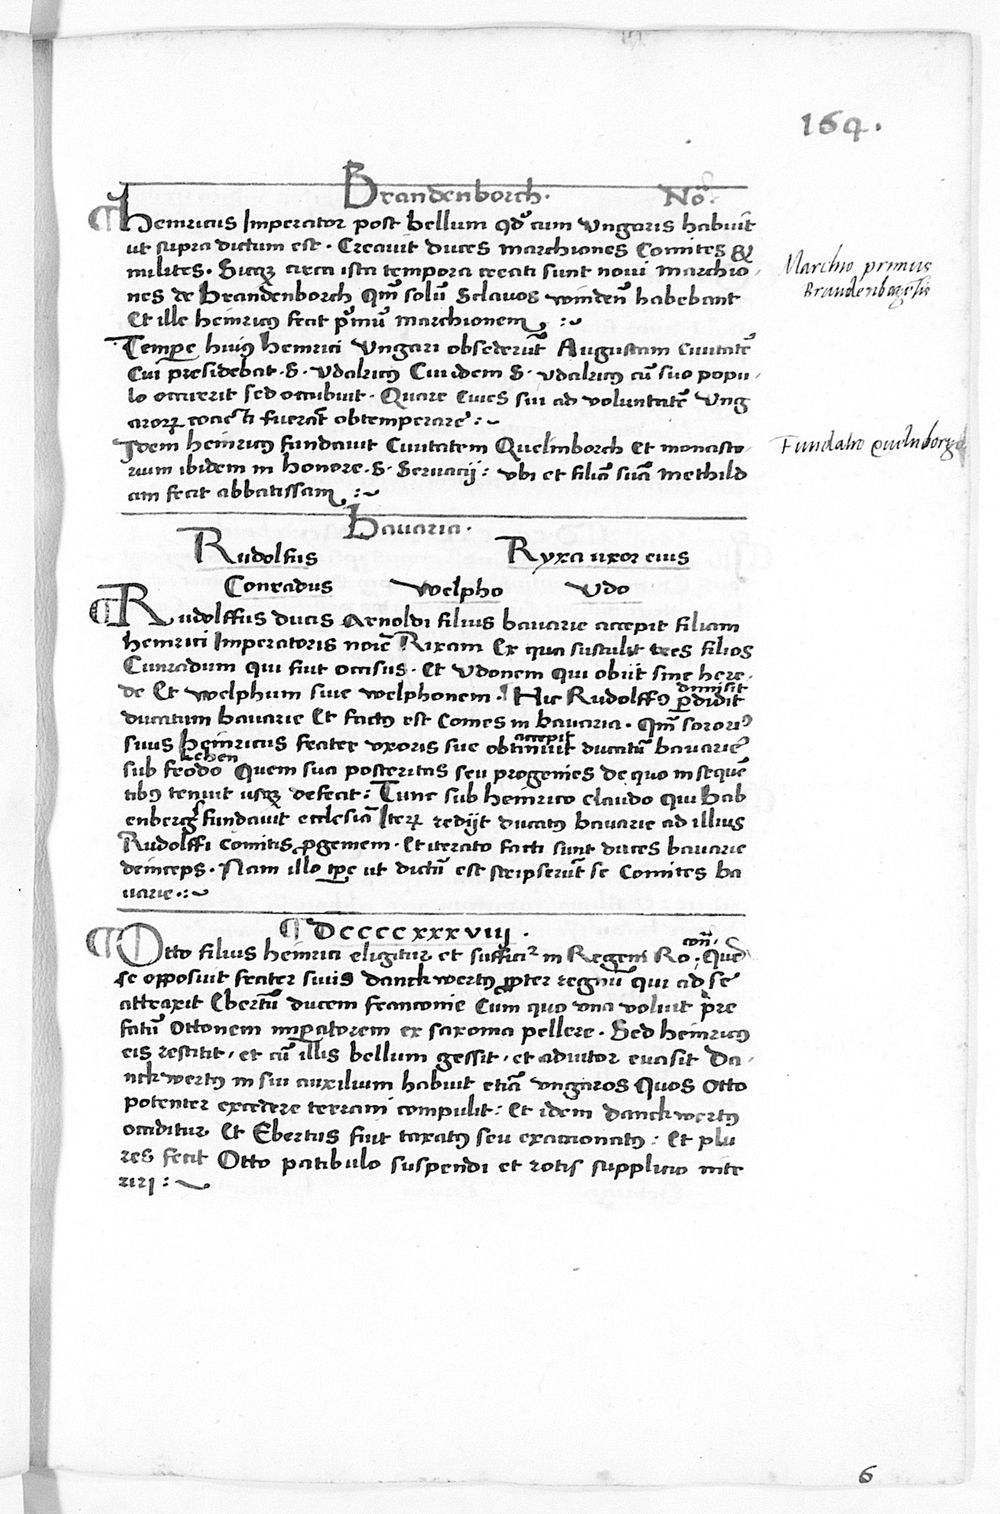 164.
Brandenborch. No͞.
¶ Heinricus Imperator post bellum qd͛ cum Ungaris habuit
ut supra dictum est. Creavit duces marchiones Comites &
milites. Sicqꝫ circa ista tempora creati sunt novi marchio-
nes de Brandenborch Qm̄ solū Sclavos winden̄ habebant
Et ille heinricꝰ fecit pͥmū marchionem :~
Marchio primus
Brandenborgēsis
Tempore huiꝰ heinrici Ungari obsederūt Augustam Civitatē
Cui presidebat .S. Udalricꝰ Cui idem S. Udalricꝰ cū suo popu-
lo occurrit sed occubuit. Quare Cives sui ad voluntatē Ung
arorꝝ coacti fuerāt obtemperare :~
Idem heinricꝰ fundavit Civitatem Quelinborch Et monaste-
rium ibidem in honore .S. Servacij: ubi et filiā suā Methild
am fecit abbatissam :~
Fundatio Quilnborge
Bavaria.
Rudolfus Ryxa uxor eius
Conradus Welpho Udo
¶ Rudolffus ducis Arnoldi filius bavarie accepit filiam
heinrici Imperatoris noīe Rixam Ex qua sustulit tres filios
Cunradum qui fuit occisus. Et Udonem qui obiit sine here-
de Et Welphum sive welphonem. Hic Rudolffꝰ ꝑdidit
dimisit
ducatum bavarie Et factꝰ est Comes in bavaria. Qm̄ sororiꝰ
suus Heinricus frater uxoris sue obtinuit ducatū bavarie
accepit
sub feodo Quem sua posteritas seu progenies de quo in sequē
lehen
tibꝰ tenuit usqꝫ defecit: Tunc sub heinrico claudo Qui bab
enbergꝰ fundavit ecclesiā Iterꝝ redijt ducatꝰ bavarie ad illius
Rudolffi Comitis ꝓgeniem. Et iterato facti sunt duces bavarie
deinceps. Nam illo tp̄e ut dictū est scripserūt se Comites ba
varie :~
¶ Dccccxxxviij.
¶ Otto filius heinrici eligitur et sufficiͬ in Regem Ro. Que
con̄.
se opposuit frater suus danckwertꝰ ꝓpter regnū qui ad se
attraxit Ebertū ducem franconie Cum quo una voluit pre
fatū Ottonem imꝑatorem ex saxonia pellere. Sed heinricꝰ
eis restitit, et cū illis bellum gessit, et adiutor evasit Da-
nckwertꝰ in sui auxilium habuit etiā ungaros Quos Otto
potenter excedere terram compulit: Et idem danckwertꝰ
occiditur Et Ebertus fuit taxatꝰ seu exactionatꝰ: Et plu
res fecit Otto patibulo suspendi et rotis supplicio inte
riri :~
6